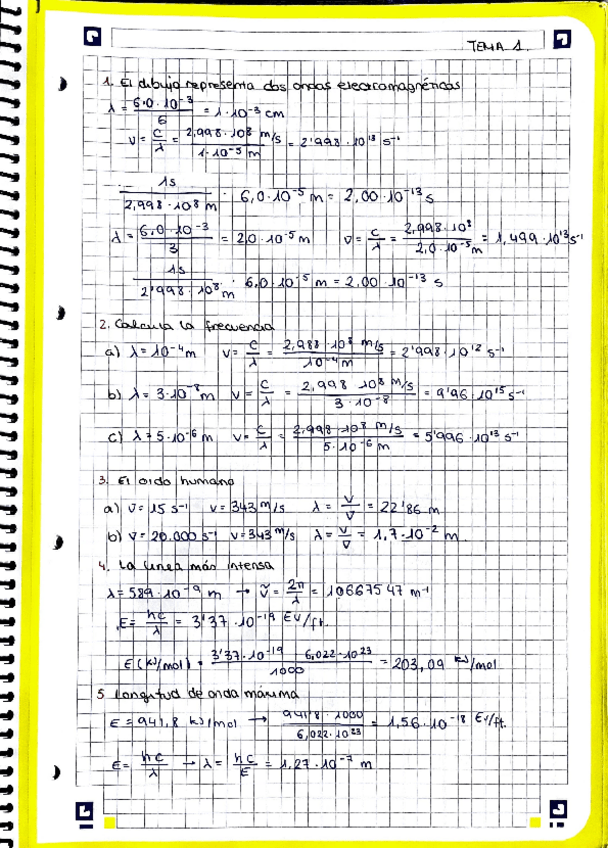 TEMA 1.
1. El dibujo representa dos ondas electromagnéticas
λ = 6,0·10⁻³ / 6 = 1·10⁻³ cm
ν = c/λ = 2,998·10⁸ m/s / 1·10⁻⁵ m = 2'998·10¹³ s⁻¹
1s / 2,998·10⁸ m · 6,0·10⁻⁵ m = 2,00·10⁻¹³ s
λ = 6,0·10⁻³ / 3 = 2,0·10⁻⁵ m ν = c/λ = 2,998·10⁸ / 2,0·10⁻⁵ m = 1,499·10¹³ s⁻¹
1s / 2'998·10⁸ m · 6,0·10⁻⁵ m = 2,00·10⁻¹³ s
2. Calcula la frecuencia
a) λ = 10⁻⁴ m ν = c/λ = 2,988·10⁸ m/s / 10⁻⁴ m = 2'998·10¹² s⁻¹
b) λ = 3·10⁻⁸ m ν = c/λ = 2,998 10⁸ m/s / 3·10⁻⁸ = 9'96·10¹⁵ s⁻¹
c) λ = 5·10⁻⁶ m ν = c/λ = 2,998·10⁸ m/s / 5·10⁻⁶ m = 5'996·10¹³ s⁻¹
3. El oido humano
a) ν = 15 s⁻¹ v = 343 m/s λ = v/ν = 22'86 m
b) ν = 20.000 s⁻¹ v = 343 m/s λ = v/ν = 1,7·10⁻² m
4. La linea más intensa
λ = 589·10⁻⁹ m → ṽ = 2π/λ = 10667547 m⁻¹
E = hc/λ = 3'37·10⁻¹⁹ EV/ft.
E (kJ/mol) = 3'37·10⁻¹⁹ · 6,022·10²³ / 1000 = 203,09 kJ/mol
5 Longitud de onda máxima
E = 941,8 kJ/mol → 941'8·1000 / 6,022·10²³ = 1,56·10⁻¹⁸ EV/ft.
E = hc/λ → λ = hc/E = 1,27·10⁻⁷ m